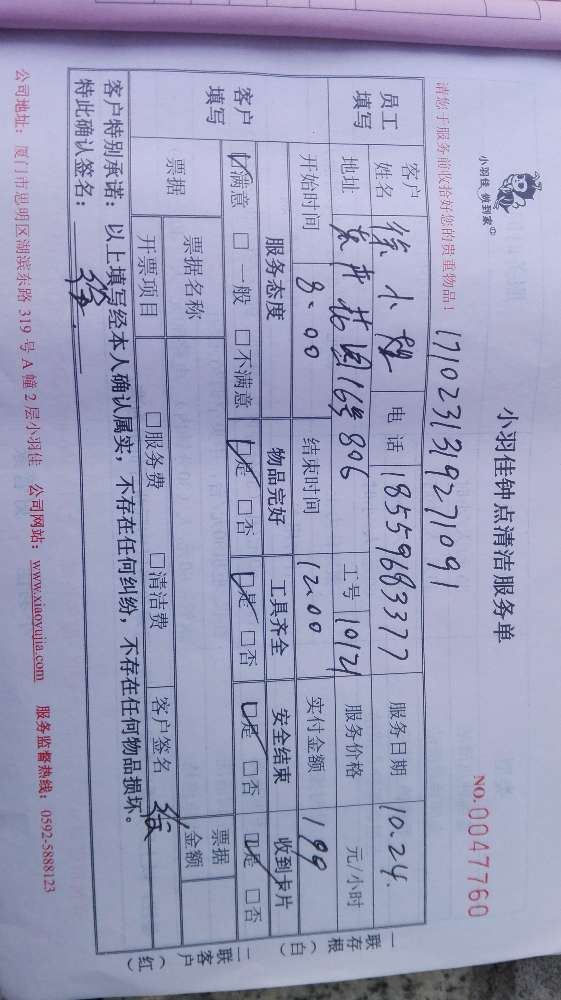 小羽佳 做到家
小羽佳钟点清洁服务单
NO.0047760
请您于服务前收拾好您的贵重物品！
1710231319271091
员工填写
客户姓名 徐小姐 电话 18559683377 服务日期 10.24.
地址 东井花园16号806 工号 10121 服务价格 元/小时
开始时间 8:00 结束时间 12:00 实付金额 199
客户填写
服务态度 物品完好 工具齐全 安全结束 收到卡片
☑满意 □一般 □不满意 ☑是 □否 ☑是 □否 ☑是 □否 ☑是 □否
票据 票据名称 票据金额
开票项目 □服务费 □清洁费 客户签名
客户特别承诺：以上填写经本人确认属实，不存在任何纠纷，不存在任何物品损坏。
特此确认签名：
一联存根（白） 二联客户（红）
公司地址：厦门市思明区湖滨东路319号A幢2层小羽佳 公司网站：www.xiaoyujia.com 服务监督热线：0592-5888123